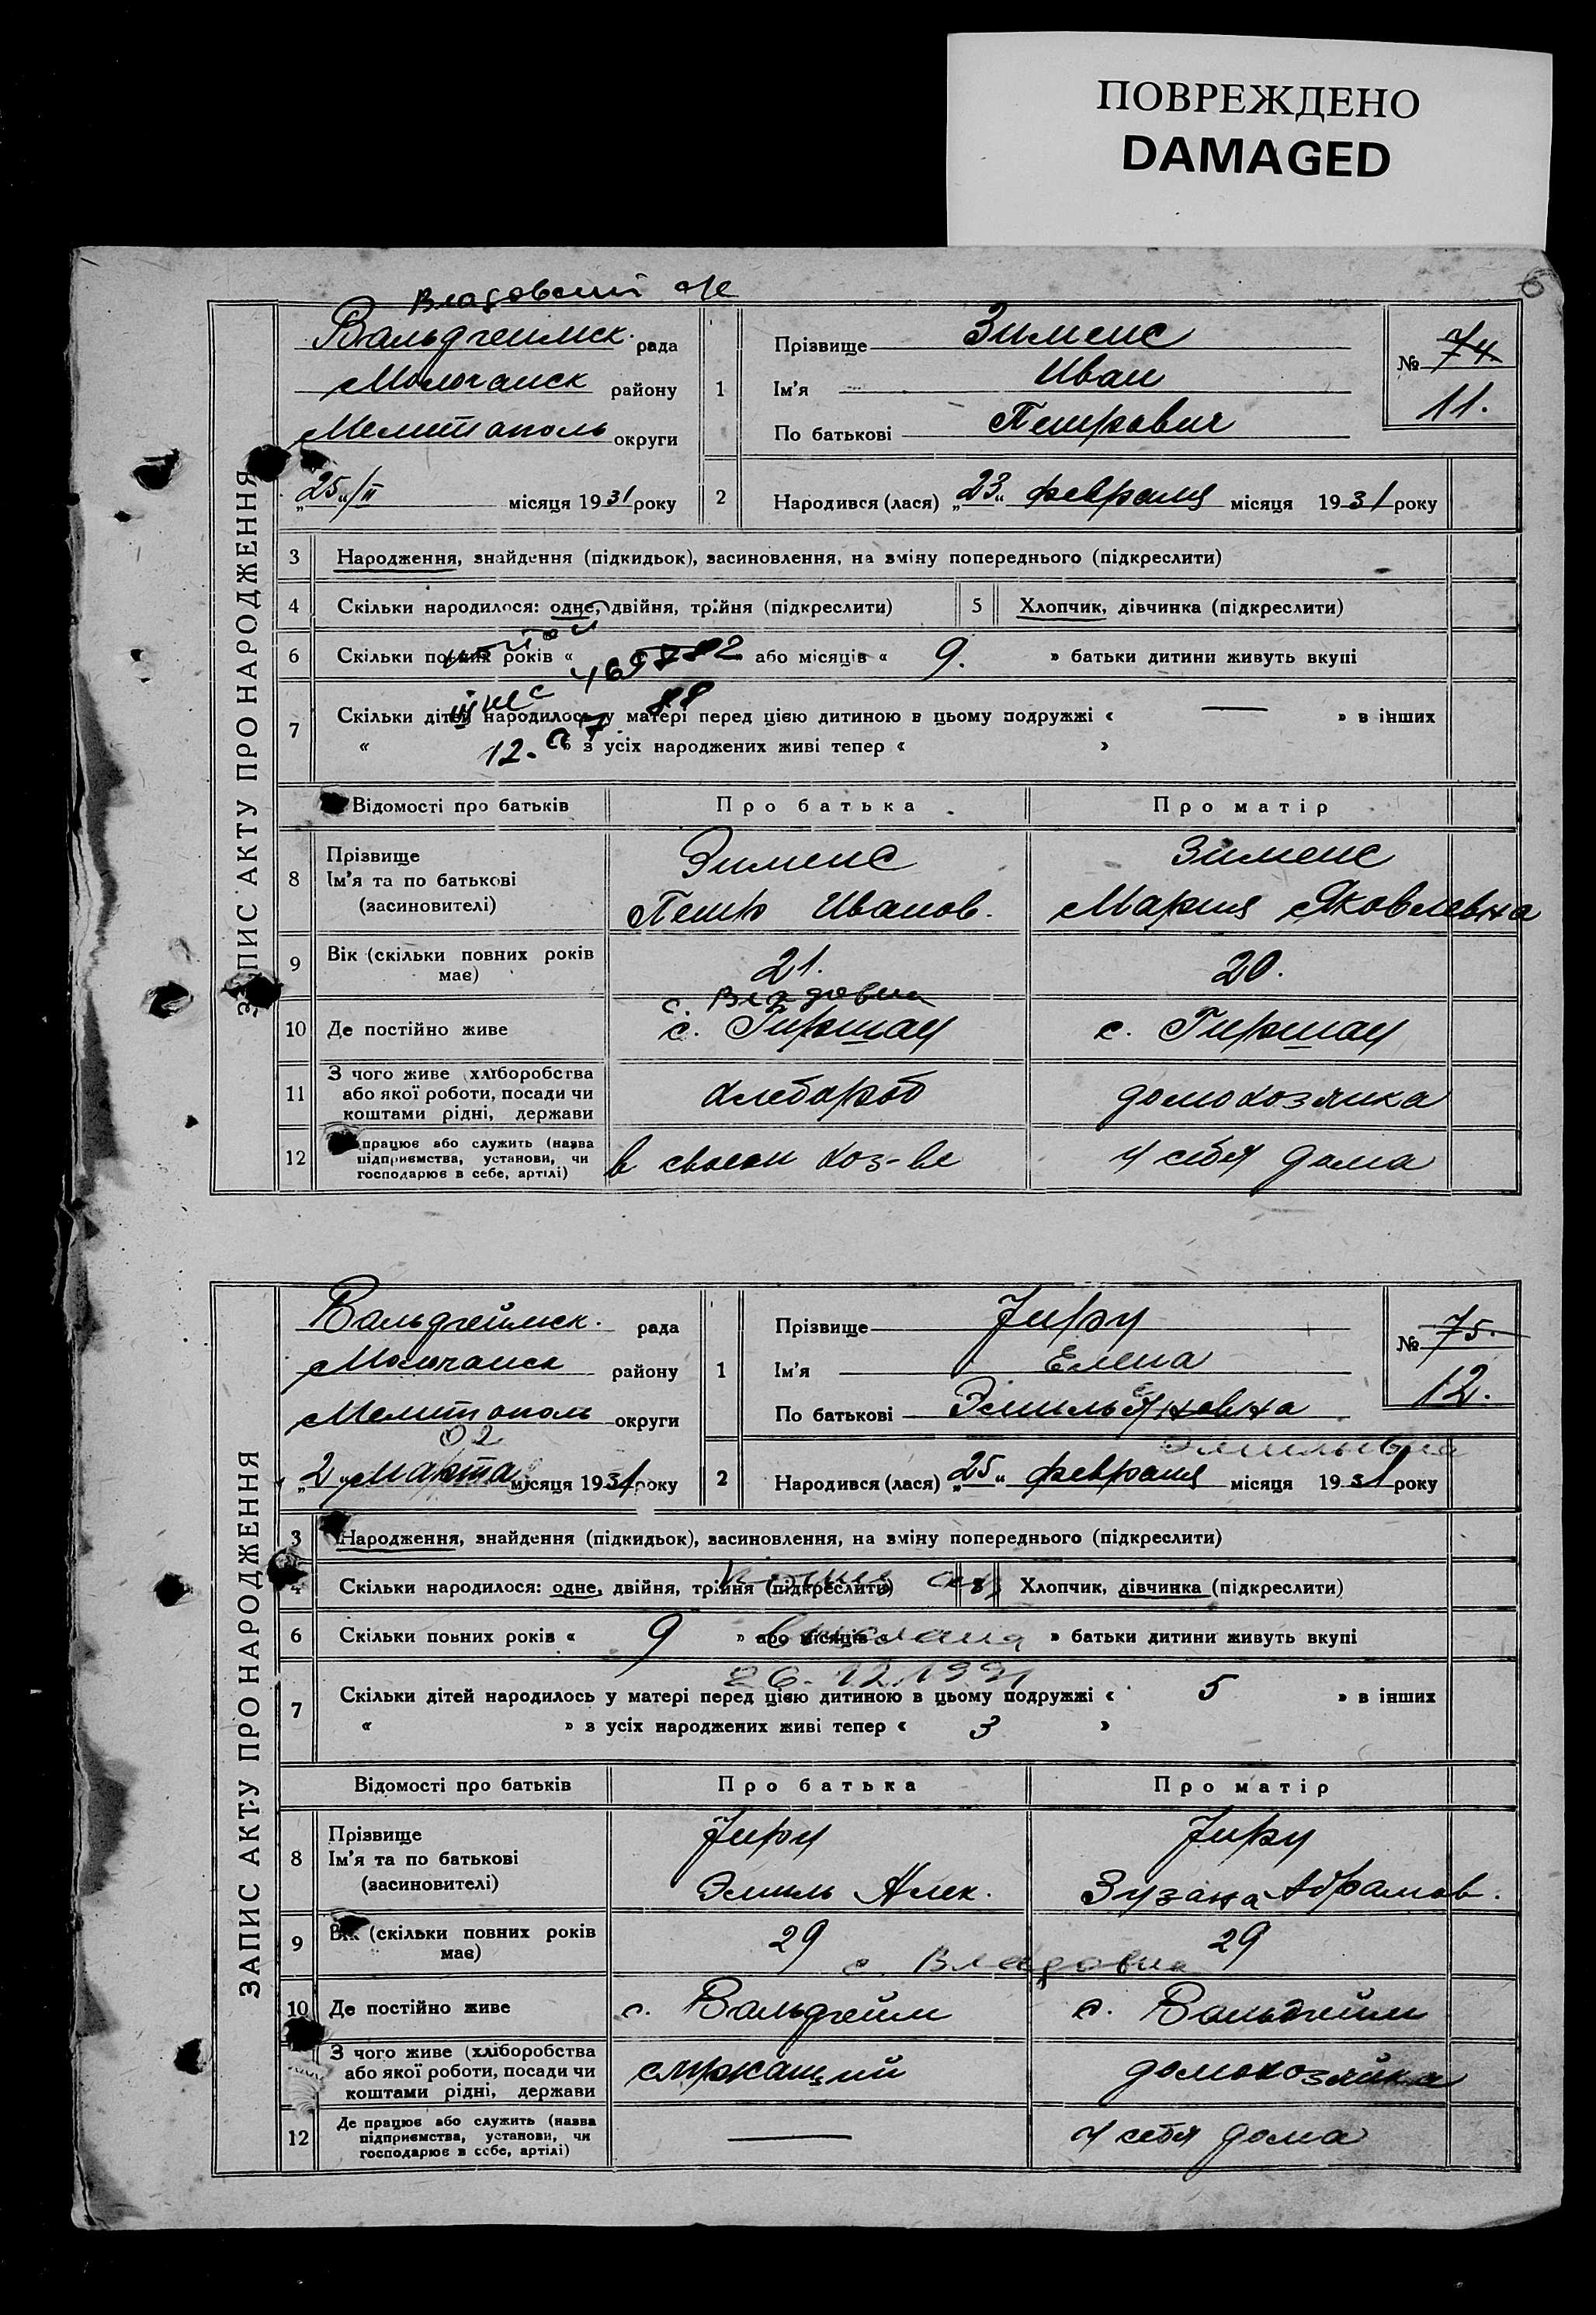 ПОВРЕЖДЕНО
DAMAGED
ЗАПИС АКТУ ПРО НАРОДЖЕННЯ
Вальдгеймск. рада
Молочанск району
Мелитополь округи
„25“/II місяця 1931 року
1
Прізвище Зименс
Ім'я Иван
По батькові Петрович
№ 74
11.
2
Народився (лася) „23“ февраля місяця 1931 року
3 Народження, знайдення (підкидьок), засиновлення, на зміну попереднього (підкреслити)
4 Скільки народилося: одне, двійня, трійня (підкреслити) 5 Хлопчик, дівчинка (підкреслити)
6 Скільки повних років « або місяців « 9. » батьки дитини живуть вкупі
7 Скільки дітей народилось у матері перед цією дитиною в цьому подружжі « — » в інших
« » з усіх народжених живі тепер « »
Відомості про батьків Про батька Про матір
8 Прізвище Ім'я та по батькові (засиновителі)
Зименс Зименс
Петр Иванов. Мария Яковлевна
9 Вік (скільки повних років має) 21. 20.
с. Владовка
10 Де постійно живе с. Гиршау с. Гиршау
11 З чого живе (хліборобства або якої роботи, посади чи коштами рідні, держави хлебороб домохозяйка
12 працює або служить (назва підприємства, установи, чи господарює в себе, артілі) в своем хоз-ве у себя дома
ЗАПИС АКТУ ПРО НАРОДЖЕННЯ
Вальдгеймск. рада
Молочанск району
Мелитополь округи
02
„2“ Марта місяця 1931 року
1
Прізвище Јиру
Ім'я Елена
По батькові Эмильяновна
№ 75.
12.
Эмильевна
2
Народився (лася) „25“ февраля місяця 1931 року
3 Народження, знайдення (підкидьок), засиновлення, на зміну попереднього (підкреслити)
4 Скільки народилося: одне, двійня, трійня (підкреслити) Хлопчик, дівчинка (підкреслити)
6 Скільки повних років « 9 » або місяців « » батьки дитини живуть вкупі
26.12.1991
7 Скільки дітей народилось у матері перед цією дитиною в цьому подружжі « 5 » в інших
« » з усіх народжених живі тепер « 3 »
Відомості про батьків Про батька Про матір
8 Прізвище Ім'я та по батькові (засиновителі)
Јиру Јиру
Эмиль Алек. Зузана Абрамов.
9 Вік (скільки повних років має) 29 29
с. Владовка
10 Де постійно живе с. Вальдгейм с. Вальдгейм
З чого живе (хліборобства або якої роботи, посади чи коштами рідні, держави служащий домохозяйка
12 Де працює або служить (назва підприємства, установи, чи господарює в себе, артілі) — у себя дома